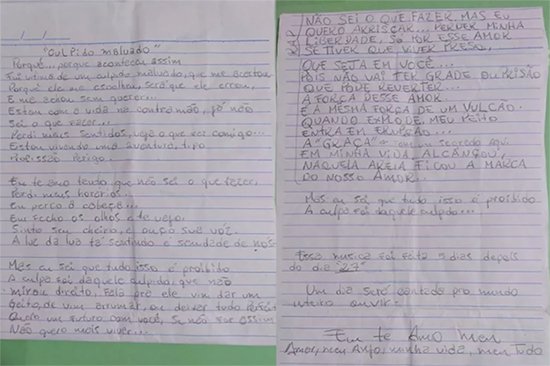 / /
"Culpido malvado"
Porquê... porque aconteceu assim
Fui vítima de um culpido malvado, que me acertou
Porquê ele me escolheu, será que ele errou,
E me achou sem querer...
Estou com a vida na contra mão, já não
Sei o que fazer...
Perdi meus sentidos, veja o que fez comigo...
Estou vivendo uma aventura, tipo
Perigo.
Eu te amo tanto que não sei o que fazer,
Perdi meus horários...
Eu perco a cabeça...
Eu fecho os olhos e te vejo.
Sinto seu cheiro, e ouço sua voz.
A luz da lua tá sentindo a saudade de nós
Mas eu sei que tudo isso é proibido
A culpa foi daquele culpido, que não
mirou direito, Fala pra ele vim dar um
Geito, de vim arrumar, ou deixar tudo
Quero um futuro com você, se não for assim
Não quero mais viver...
NÃO SEI O QUE FAZER, MAS EU
QUERO ARRISCAR... PERDER MINHA
LIBERDADE, SÓ POR ESSE AMOR
SE TIVER QUE VIVER PRESO,
QUE SEJA EM VOCÊ...
POIS NÃO VAI TER GRADE OU PRISÃO
QUE PODE REVERTER...
A FORÇA DESSE AMOR
É A MESMA FORÇA DE UM VULCÃO.
QUANDO EXPLODE, MEU PEITO
ENTRA EM ERUPÇÃO...
A "GRAÇA" tem um segredo aqui
EM MINHA VIDA, ALCANÇOU,
NAQUELA AREIA FICOU A MARCA
DO NOSSO AMOR...
Mas eu sei que tudo isso é proibido
A culpa foi daquele culpido...
Essa musica foi feita 5 dias depois
do dia "27"
Um dia será cantada pro mundo
inteiro ouvir.
Eu te Amo meu
Amor, meu Anjo, minha vida, meu Tudo